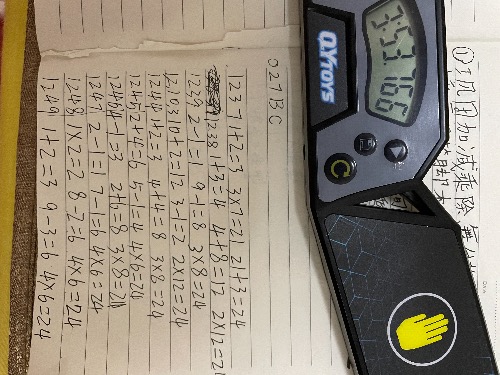 ①项目加减乘除
7:53.766
QYTOYS
1237 1+2=3 3×7=21 21+3=24
1238 1+3=4 4+8=12 2×12=2
1239 2-1=1 9-1=8 3×8=24
10+2=12 3-1=2 2×12=24
1244 1+2=3 4+4=8 3×8=24
1245 2+4=6 5-1=4 4×6=24
1246 4-1=3 3×8=24
1247 2-1=1 7-1=6 4×6=24
1248 1×2=2 8-2=6 4×6=24
1249 1+2=3 9-3=6 4×6=24